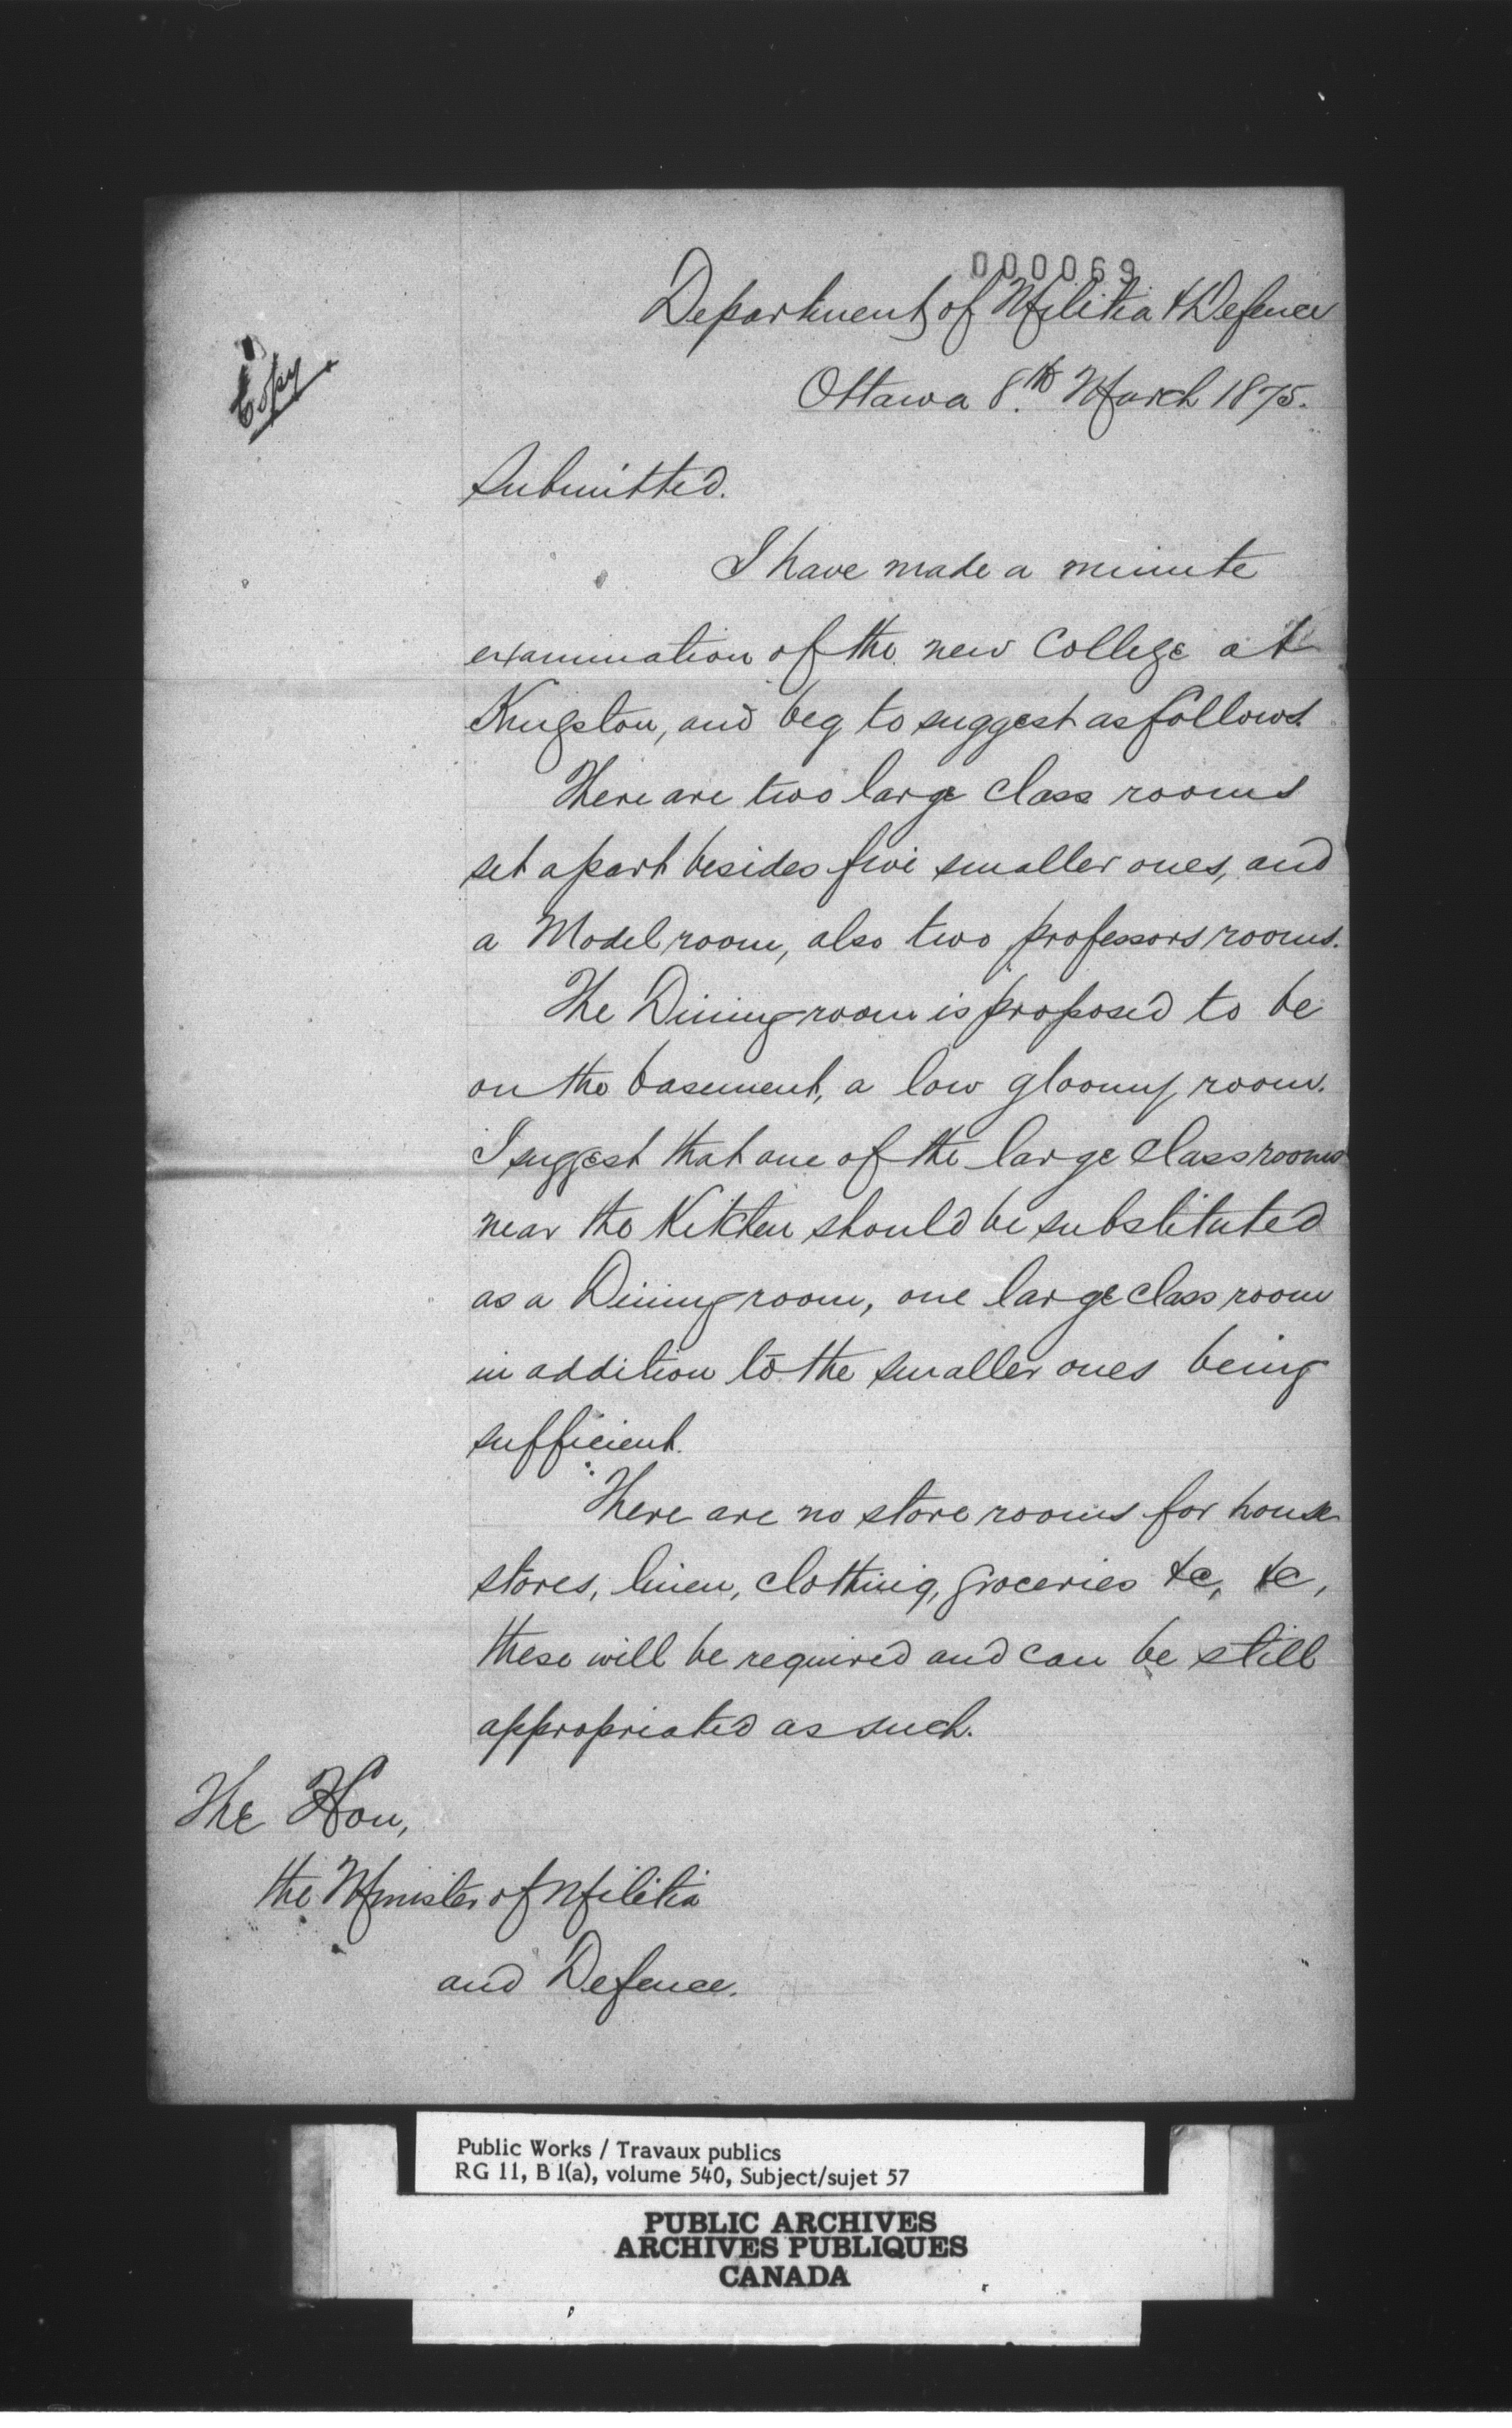 000069
Department of Militia & Defence
Ottawa 8.th March 1875.
Copy
Submitted.
I have made a minute
examination of the new College at
Kingston, and beg to suggest as follows.
There are two large class rooms
set apart besides five smaller ones, and
a Model room, also two professors rooms.
The Dining room is proposed to be
on the basement, a low gloomy room.
I suggest that one of the large class rooms
near the Kitchen should be substituted
as a Dining room, one large class room
in addition to the smaller ones being
sufficient.
There are no store rooms for house
stores, linen, clothing, groceries &c, &c,
these will be required and can be still
appropriated as such.
The Hon,
the Minister of Militia
and Defence.
Public Works / Travaux publics
RG 11, B 1(a), volume 540, Subject/sujet 57
PUBLIC ARCHIVES
ARCHIVES PUBLIQUES
CANADA